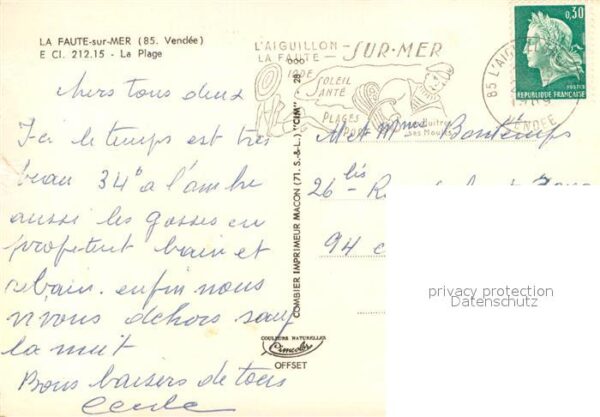 LA FAUTE-sur-MER (85. Vendée)
E CI. 212.15 - La Plage
chers tous deux
Ici le temps est très
beau 34° a l'ombre
aussi les gosses en
profitent bain et
rebain. enfin nous
vivons dehors sauf
la nuit
Bons baisers de tous
Cecile
COMBIER IMPRIMEUR MACON (71. S.-&-L.) "CIM"
COULEURS NATURELLES
Cimcolor
OFFSET
L'AIGUILLON - SUR-MER
LA FAUTE
IODE SOLEIL
SANTÉ
PLAGES
PORT
ses Moules
85 L'AIGUILLON
VENDEE
0,30
REPUBLIQUE FRANÇAISE
M et Mme Bontemps
26 bis
94
privacy protection
Datenschutz